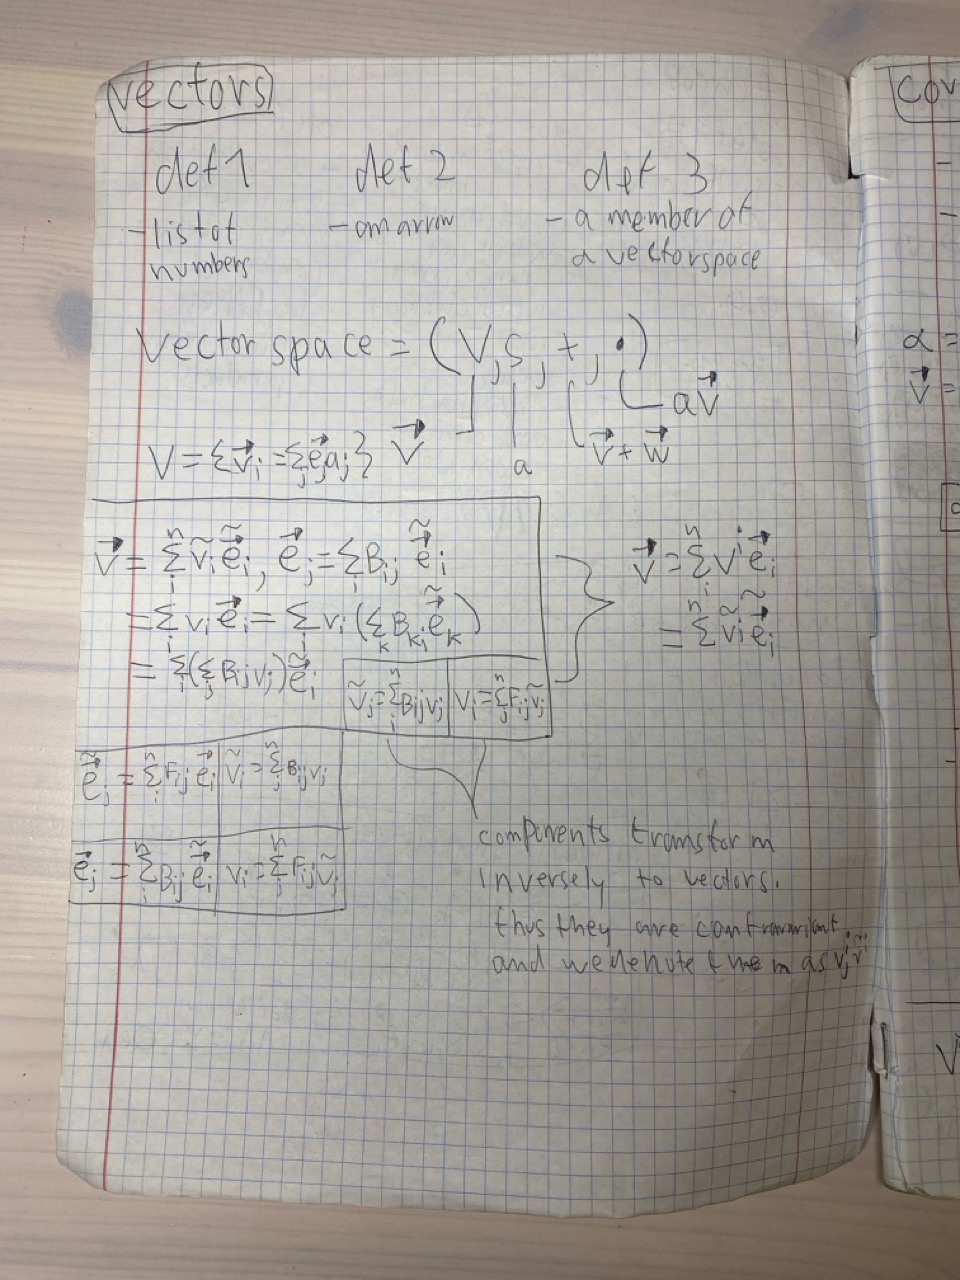 vectors
def 1 def 2 def 3
- list of numbers
- an arrow
- a member of
a vectorspace
Vector space = (V, S, +, ·)
a\vec{v}
\vec{v} + \vec{w}
a
V = {\vec{v}_i = Σ_j \vec{e}_j a_j} \vec{v}
\vec{v} = Σ_i^n ṽ_i \tilde{\vec{e}}_i, \vec{e}_j = Σ_i B_{ij} \tilde{\vec{e}}_i
= Σ_i v_i \vec{e}_i = Σ_i v_i (Σ_k B_{ki} \tilde{\vec{e}}_k)
= Σ_i (Σ_j B_{ij} v_j) \tilde{\vec{e}}_i
ṽ_j = Σ_i^n B_{ij} v_j
v_i = Σ_j^n F_{ij} ṽ_j
\vec{v} = Σ_i^n v^i \vec{e}_i
= Σ^n ṽ^i \tilde{\vec{e}}_i
\tilde{\vec{e}}_j = Σ_i^n F_{ij} \vec{e}_i
ṽ_i = Σ_j^n B_{ij} v_j
\vec{e}_j = Σ_i^n B_{ij} \tilde{\vec{e}}_i
v_i = Σ_j^n F_{ij} ṽ_j
components transform
inversely to vectors.
thus they are contravariant.
and we denote them as v^i, ṽ^i
cov
α =
\vec{v} =
V